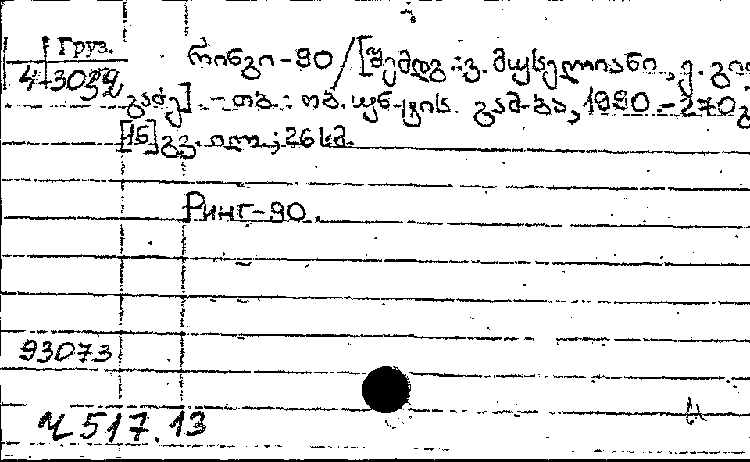 Груз.
4-3032
რინგი-90/[შემდგ.: ვ. მუსელიანი, ე. გი
გაძე]. - თბ.: თბ. უნ-ტის გამ-ბა, 1990. - 270გ
[16]გვ. ილ.; 26სმ.
Ринг-90.
93073
Ч 517.13